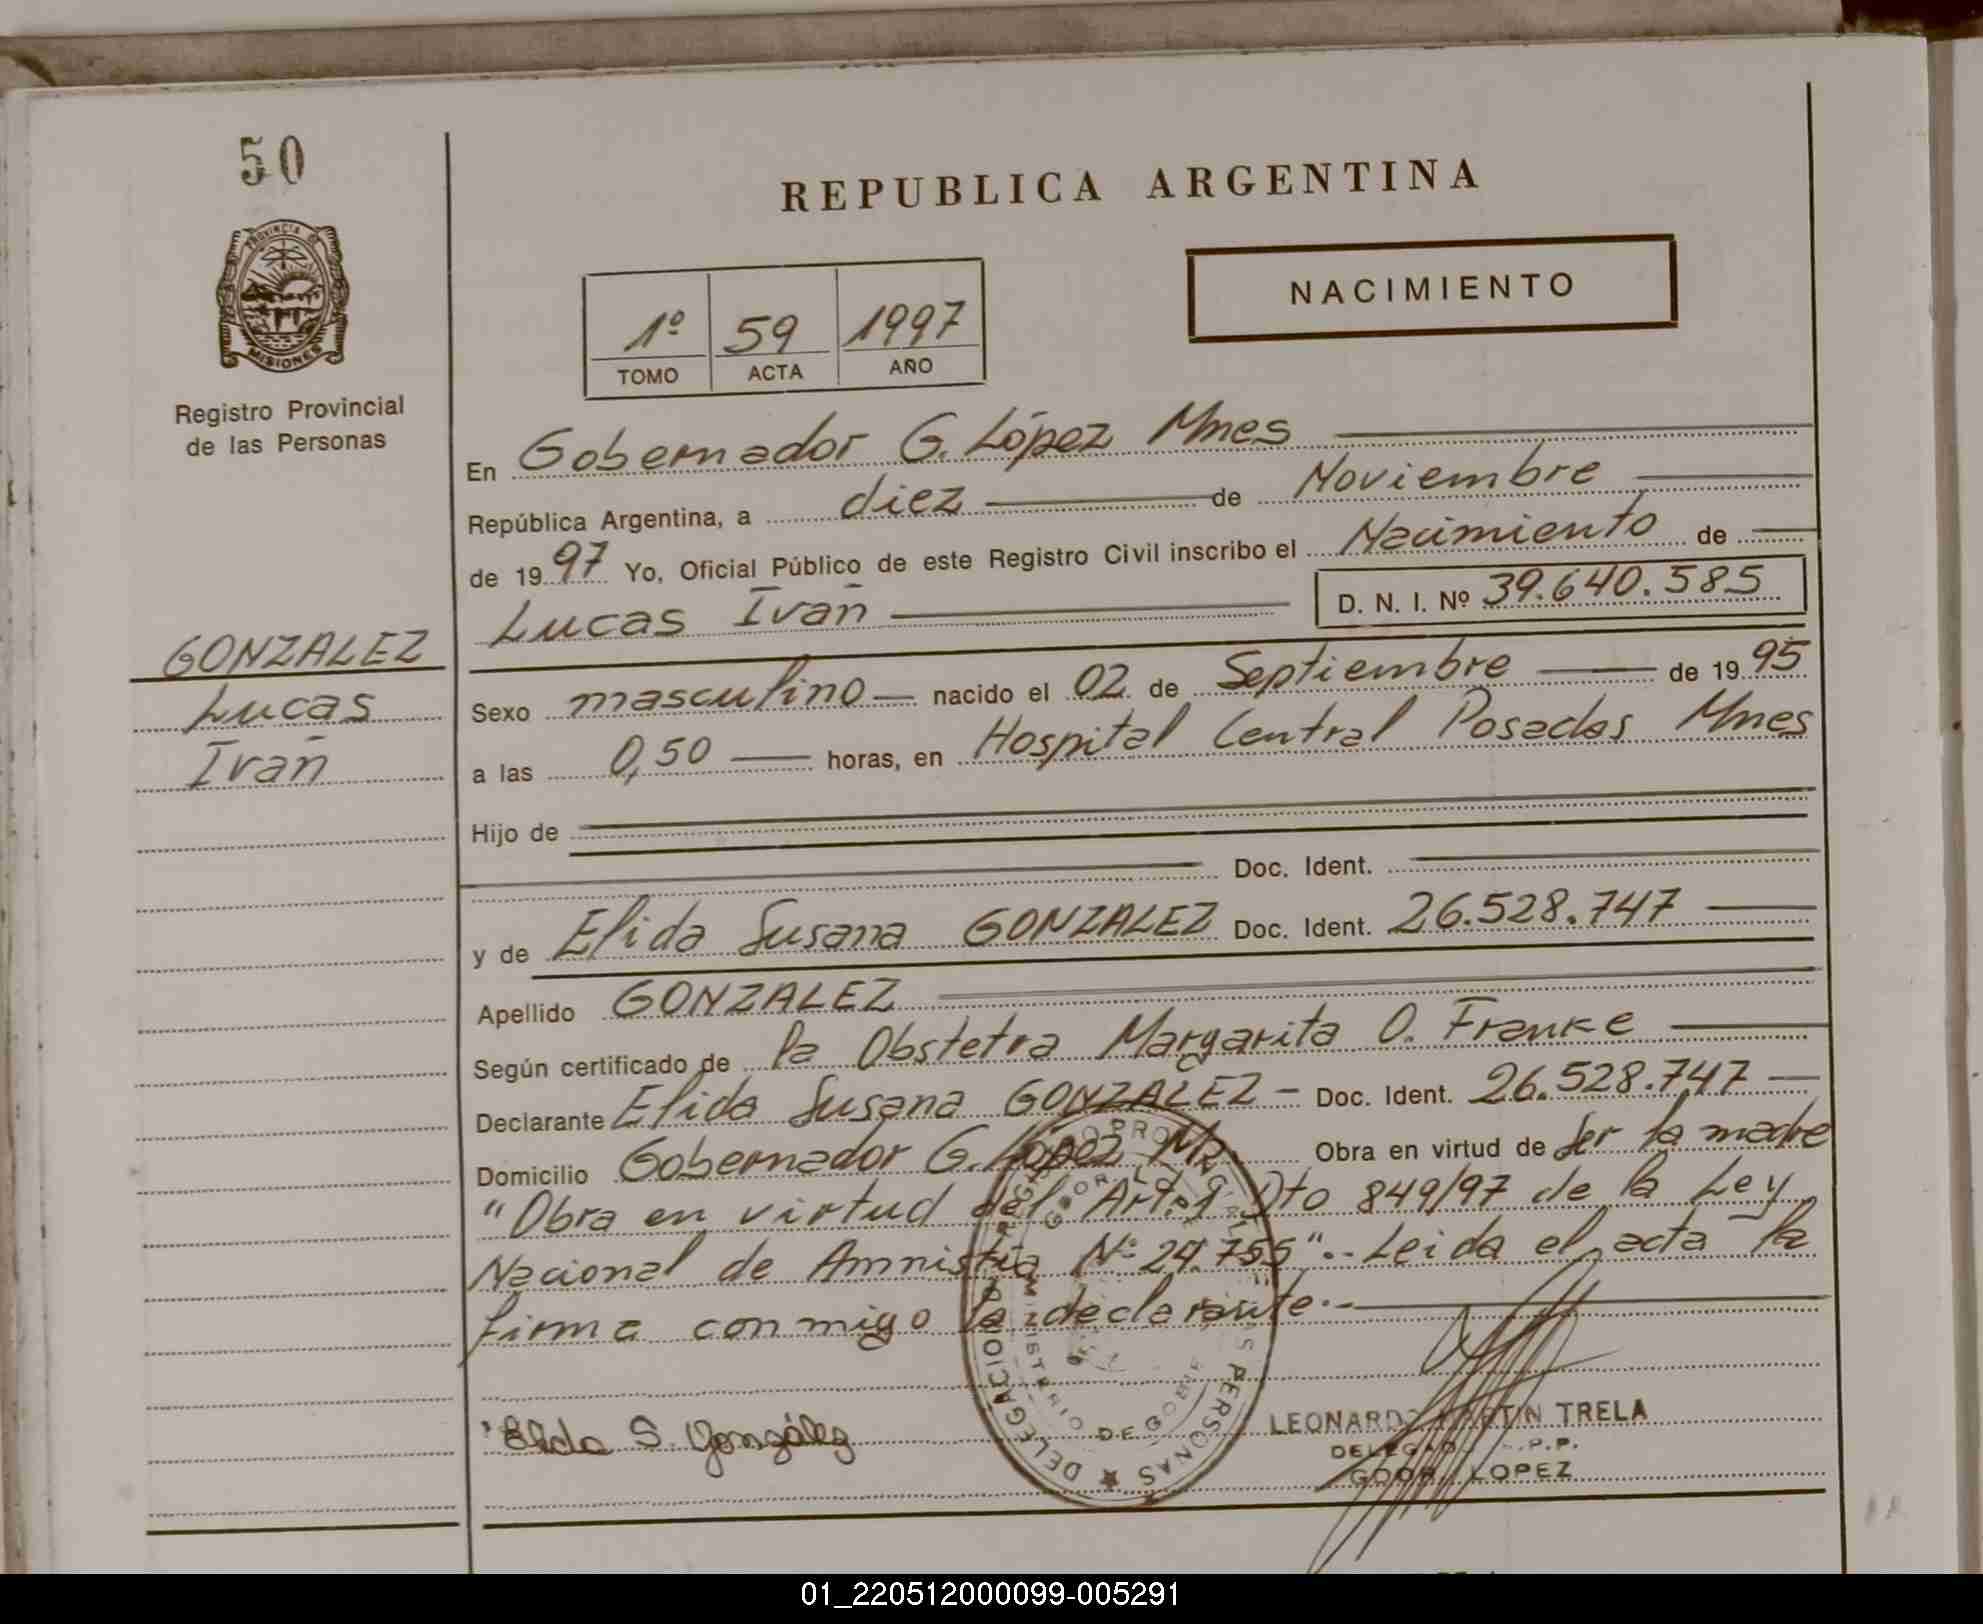 50
REPUBLICA ARGENTINA
PROVINCIA DE
MISIONES
Registro Provincial
de las Personas
1º 59 1997
TOMO ACTA AÑO
NACIMIENTO
En Gobernador G. López Mnes
República Argentina, a diez de Noviembre
de 1997 Yo, Oficial Público de este Registro Civil inscribo el Nacimiento de
Lucas Iván D. N. I. Nº 39.640.585
GONZALEZ
Lucas
Iván
Sexo masculino nacido el 02 de Septiembre de 1995
a las 0,50 horas, en Hospital Central Posadas Mnes
Hijo de
Doc. Ident.
y de Elida Susana GONZALEZ Doc. Ident. 26.528.747
Apellido GONZALEZ
Según certificado de la Obstetra Margarita O. Franke
Declarante Elida Susana GONZALEZ - Doc. Ident. 26.528.747
Domicilio Gobernador G. López Obra en virtud de Ser la madre
"Obra en virtud del Art. 1 Dto 849/97 de la Ley
Nacional de Amnistía Nº 24.755".- Leida el acta la
firma conmigo la declarante.-
Elida S. González
DELEGACION PERSONAS
MINISTERIO DE GOBIE
LEONARDO MARTIN TRELA
DELEGADO P.P.
GDOR. LOPEZ
01_220512000099-005291